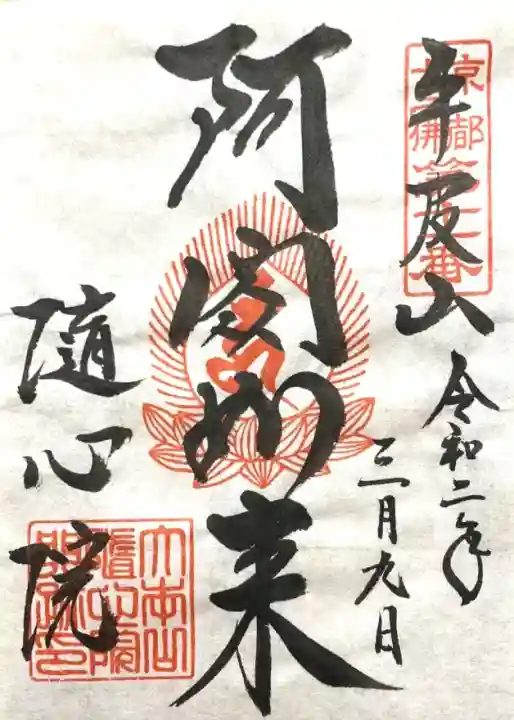 京都
十三佛
第十一番
牛皮山
令和二年
三月九日
阿閦如来
隨心院
大本山
隨心院
門跡印